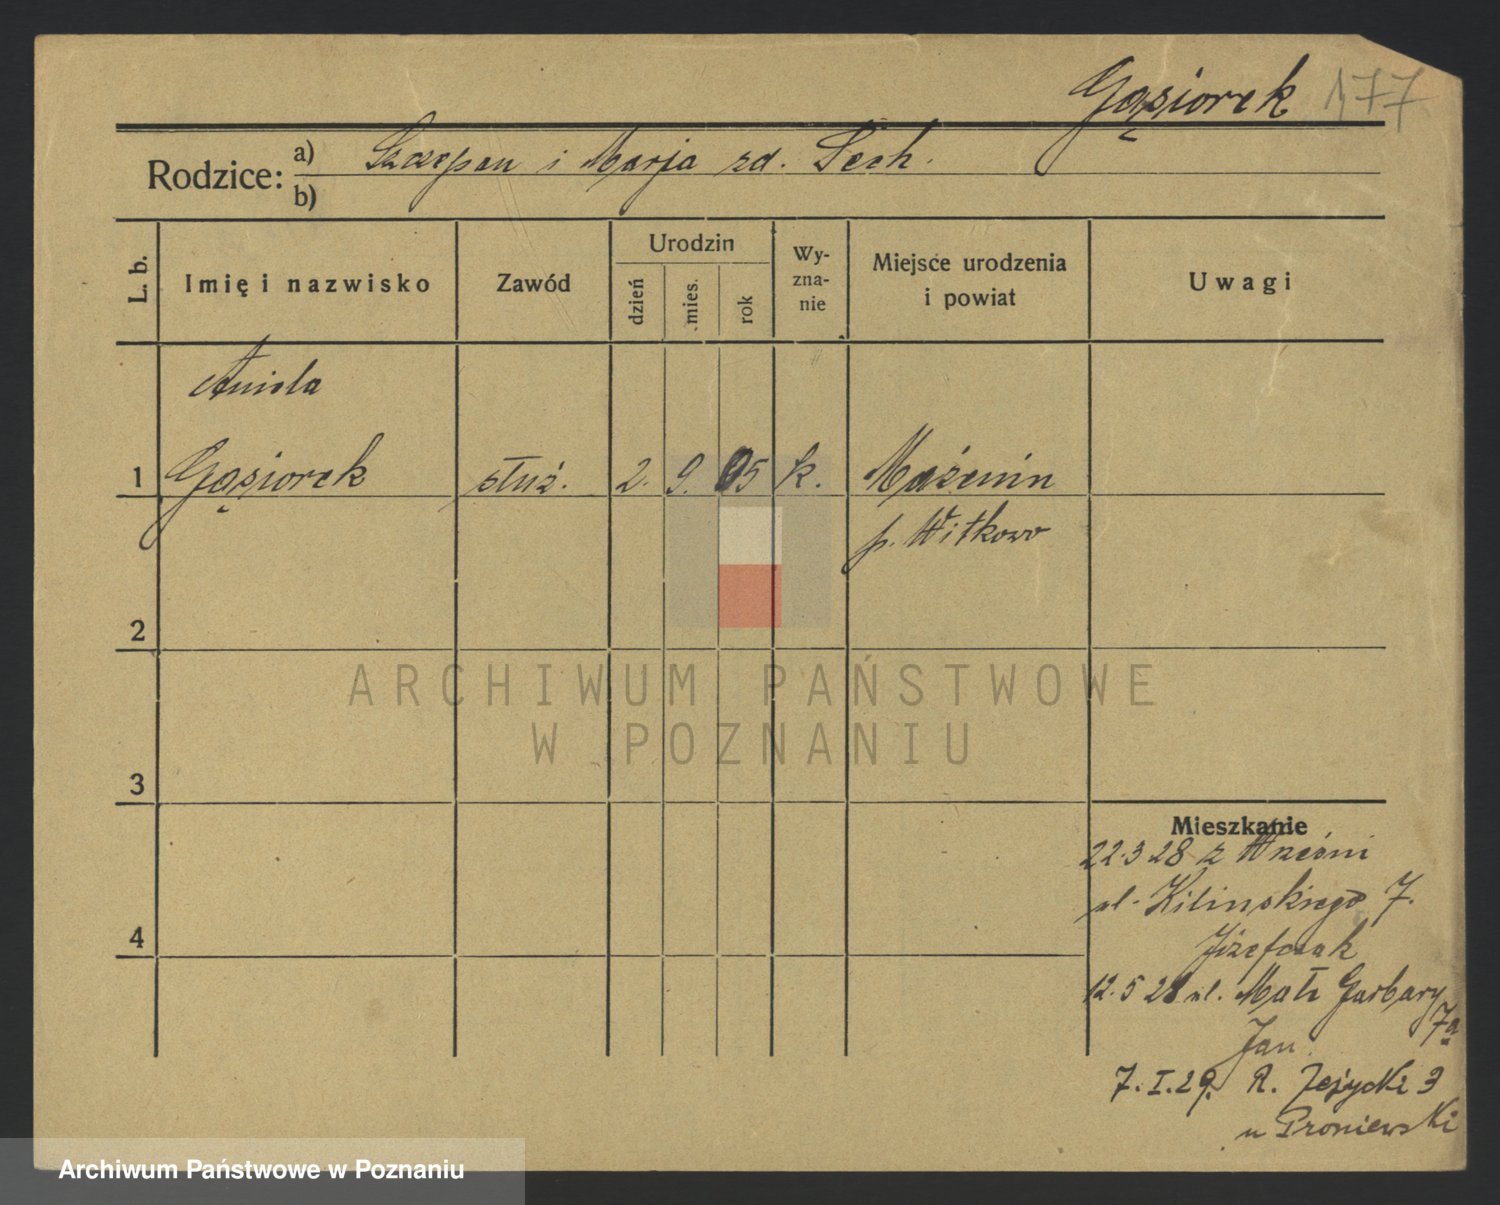 Gąsiorek 177
Rodzice: a) Szczepan i Marja zd. Lech.
b)
L. b. Imię i nazwisko Zawód Urodzin dzień mies. rok Wyznanie Miejsce urodzenia i powiat Uwagi
Aniela
1 Gąsiorek służ. 2. 9. 05 k. Mażenin
p. Witkowo
2
ARCHIWUM PAŃSTWOWE
W POZNANIU
3
Mieszkanie
22.3 28 z Wrześni
ul. Kilinskiego 7.
Józefczak
4
12.5 28 ul. Małe Garbary
7a
Jan
7.I.29. R. Jeżycki 3
u Proniewski
Archiwum Państwowe w Poznaniu